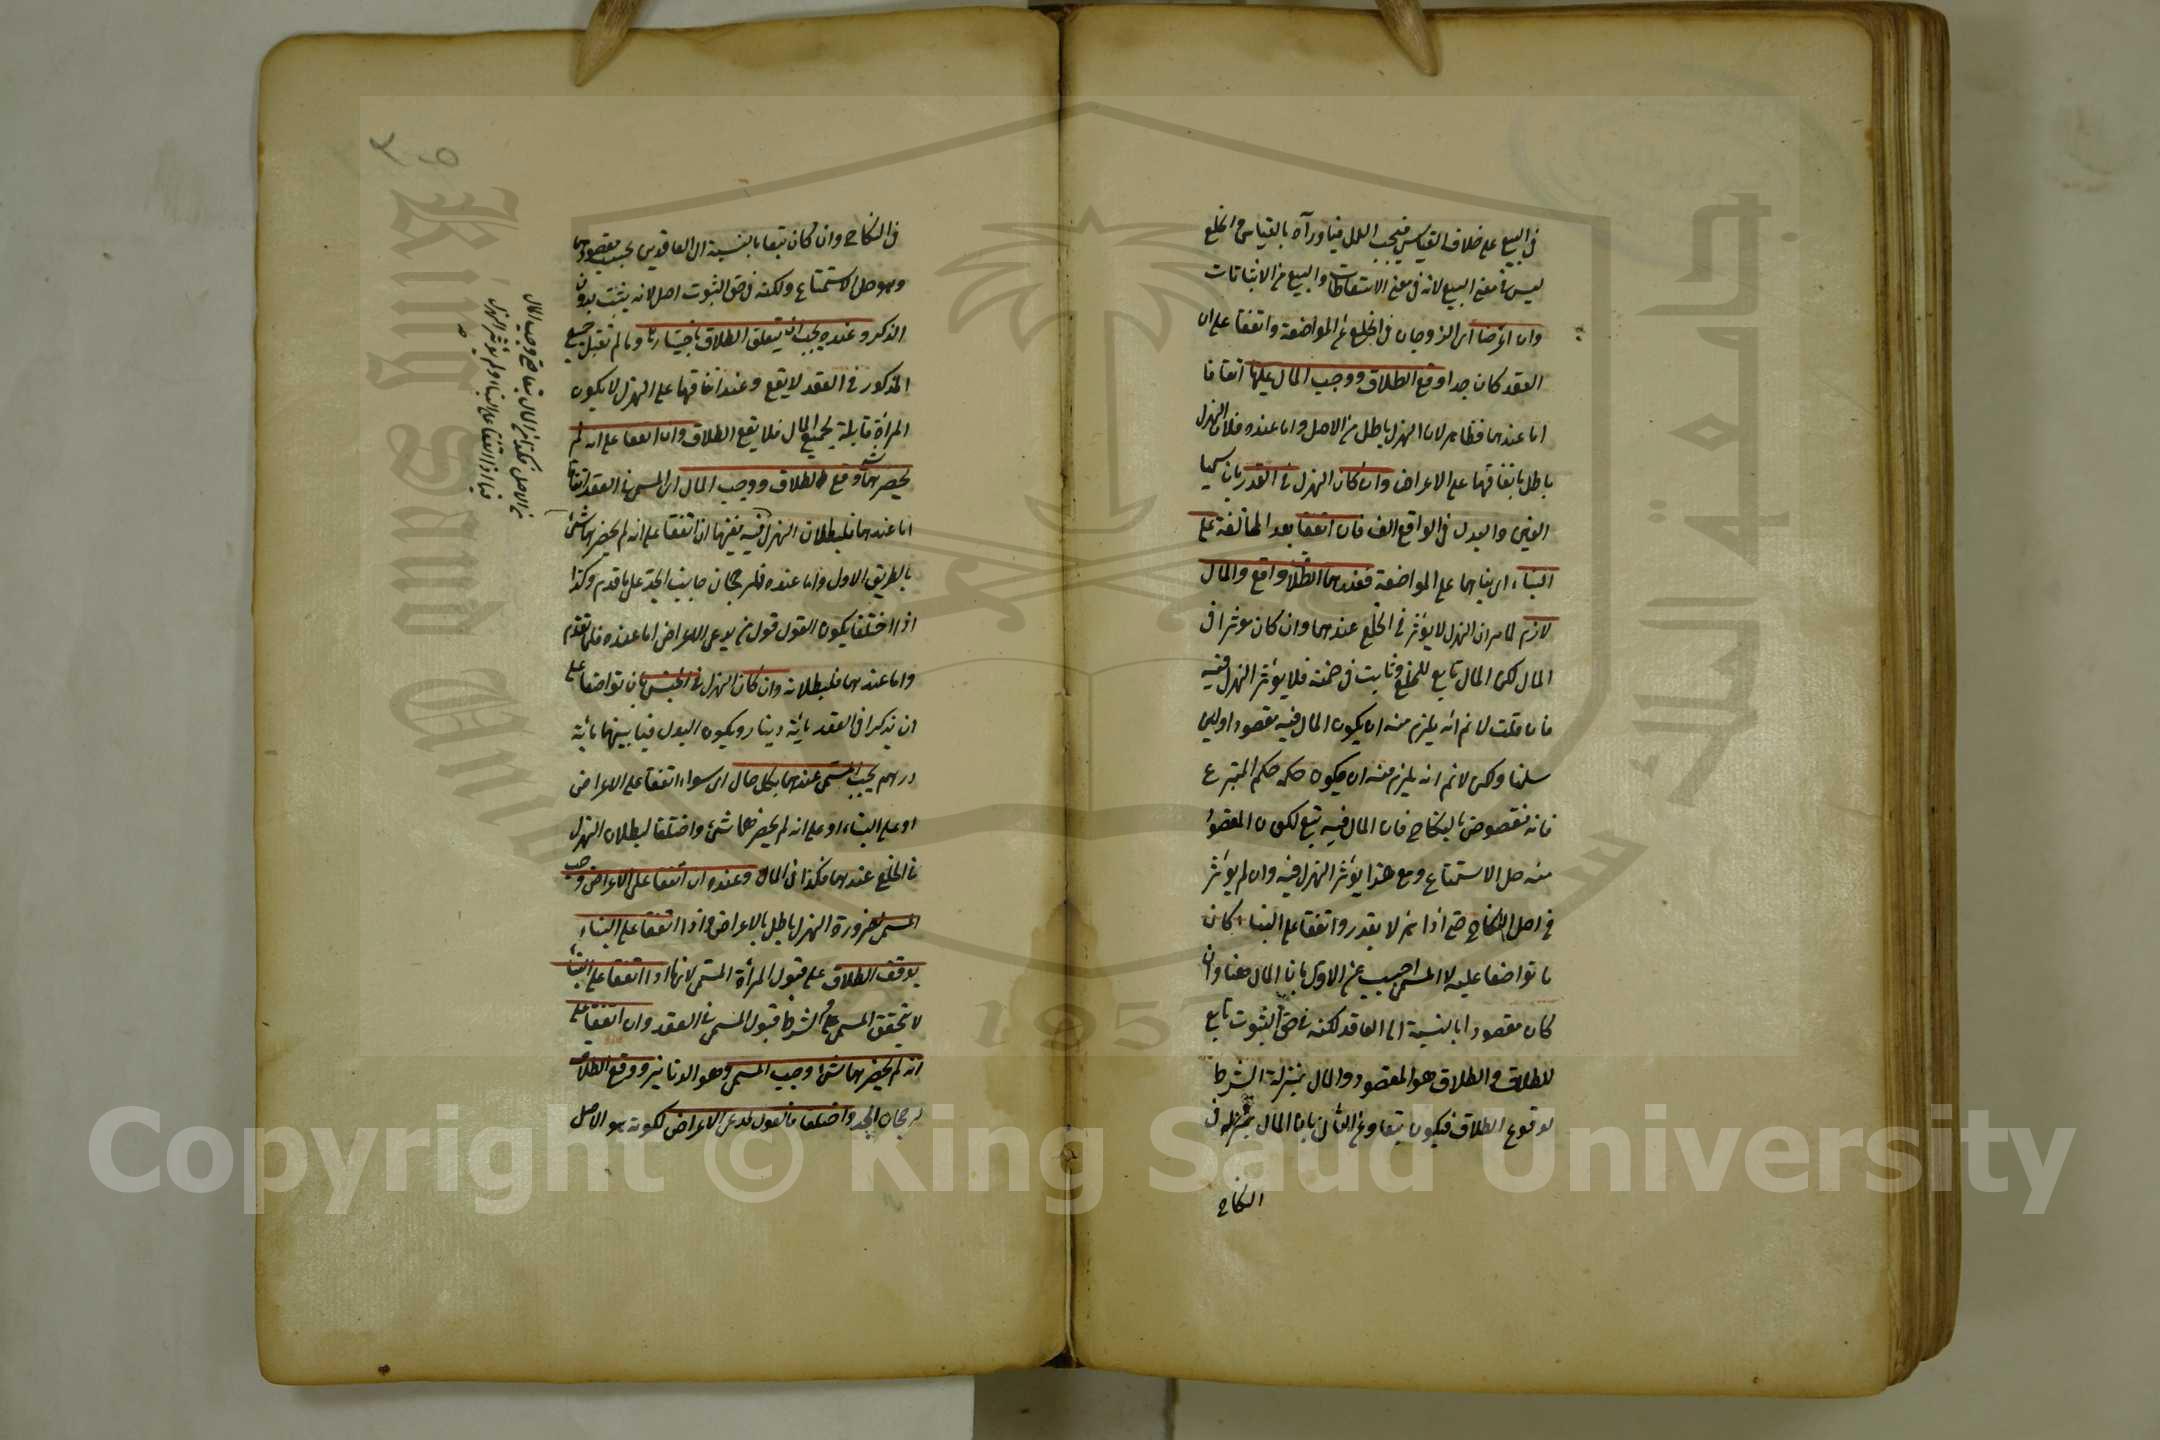 في البيع على خلاف القياس فيجب العمل فيما ورآه بالقياس والخلع
ليس في معنى البيع لانه في معنى الاسقاطات والبيع من الاثباتات
وان اعرضا اى الزوجان في الخلع عن المواضعة واتفقا على ان
العقد كان جدا وقع الطلاق ووجب المال عليها اتفاقا
اما عندهما فظاهر لان الهزل باطل من الاصل واما عنده فلان الهزل
باطل باتفاقهما على الاعراض وان كان الهزل في القدر بان سميا
الفين والبدل في الواقع الف فان اتفقا بعد المخالفة على
البناء اى بنائهما على المواضعة فعندهما الطلاق واقع والمال
لازم لما مر ان الهزل لا يؤثر في الخلع عندهما وان كان مؤثرا في
المال لكن المال تابع للخلع وثابت في ضمنه فلا يؤثر الهزل فيه
فان قلت لا نم انه يلزم منه ان يكون المال فيه مقصودا ولئن
سلمنا ولكن لا نم انه يلزم منه ان يكون حكمه حكم المتبوع
فانه منقوض بالنكاح فان المال فيه تبع لكون المقصود
منه حل الاستمتاع ومع هذا يؤثر الهزل فيه وان لم يؤثر
في اصل النكاح حتى اذا هزلا بقدر واتفقا على البناء كان
ما تواضعا عليه لا المسمى اجيب عن الاول بان المال هنا وان
كان مقصودا بالنسبة الى العاقد لكنه في حق الثبوت تابع
للطلاق والطلاق هو المقصود والمال بمنزلة الشرط
لوقوع الطلاق فيكون تبعا وعن الثاني بان المال
النكاح
في النكاح وان كان تبعا بالنسبة الى العاقدين بحسب مقصودهما
وهو حل الاستمتاع ولكنه في حق الثبوت اصل لانه يثبت بدون
الذكر وعنده يجب ان يتعلق الطلاق باختيارها وما لم تقبل جميع
المذكور في العقد لا يقع وعند اتفاقهما على الهزل لا يكون
المرأة قابلة لجميع المال فلا يقع الطلاق وان اتفقا على انه لم
يحضرهما شئ وقع الطلاق ووجب المال اى المسمى في العقد اتفاقا
اما عندهما فلبطلان الهزل اتفقا على انه لم يحضرهما شئ
بالطريق الاول واما عنده فلرجحان جانب الجد على ما قدم وكذا
اذا اختلفا يكون القول قول من يدعى الاعراض اما عنده فلما تقدم
واما عندهما فلبطلانه وان كان الهزل في الجنس بان تواضعا على
ان يذكرا في العقد مائة دينار ويكون البدل فيما بينهما مائة
درهم يجب المسمى عندهما بكل حال اى سواء اتفقا على الاعراض
او على البناء او على انه لم يحضرهما شئ واختلفا لبطلان الهزل
في الخلع عندهما فكذا في المال وعنده ان اتفقا على الاعراض وجب
المسمى لضرورة الهزل باطل بالاعراض واذا اتفقا على البناء
يوقف الطلاق على قبول المرأة المسمى لانهما اذا اتفقا على البناء
لا يتحقق المسمى والشرط قبول المسمى في العقد وان اتفقا على
انه لم يحضرهما شئ وجب المسمى وهو الدنانير ووقع الطلاق
لرجحان الجد واختلفا فالقول لمدعى الاعراض لكونه هو الاصل